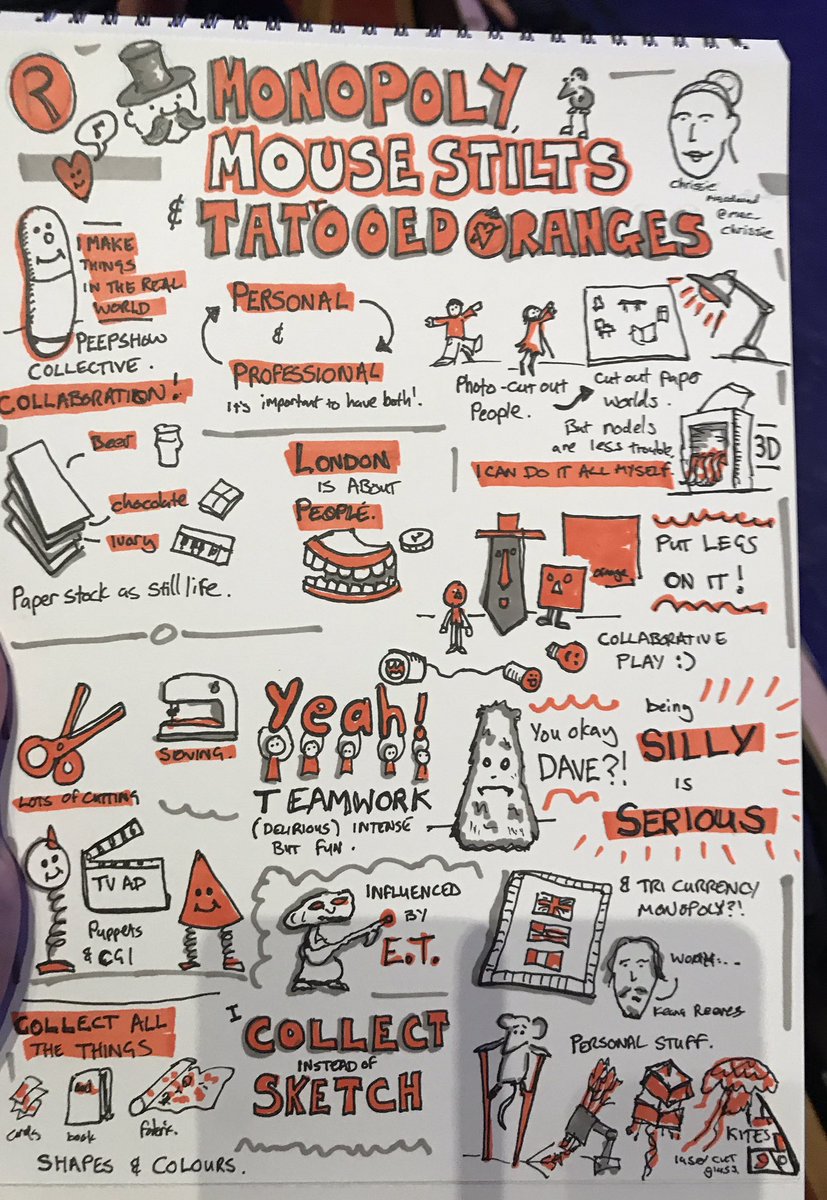 R
MONOPOLY,
MOUSE STILTS
& TATTOOED ORANGES
chrissie
@mac_
chrissie
I MAKE
THINGS
IN THE REAL
WORLD
PEEPSHOW
COLLECTIVE.
COLLABORATION!
PERSONAL
&
PROFESSIONAL
It's important to have both!
Photo-cut out
People.
Cut out paper
worlds.
But models
are less trouble
3D
I CAN DO IT ALL MYSELF.
Beer
chocolate
Ivory
Paper stock as still life.
LONDON
IS ABOUT
PEOPLE.
orange
PUT LEGS
ON IT!
COLLABORATIVE
PLAY :)
LOTS OF CUTTING
SEWING.
Yeah!
TEAMWORK
(DELIRIOUS) INTENSE
BUT FUN.
You okay
DAVE?!
being
SILLY
is
SERIOUS
TV AD
Puppets
& CGI
INFLUENCED
BY
E.T.
& TRI CURRENCY
MONOPOLY?!
WOAH...
Keanu Reeves
COLLECT ALL
THE THINGS
cards
book
fabric.
SHAPES & COLOURS.
I
COLLECT
INSTEAD OF
SKETCH
PERSONAL STUFF.
KITES
laser cut
glass.